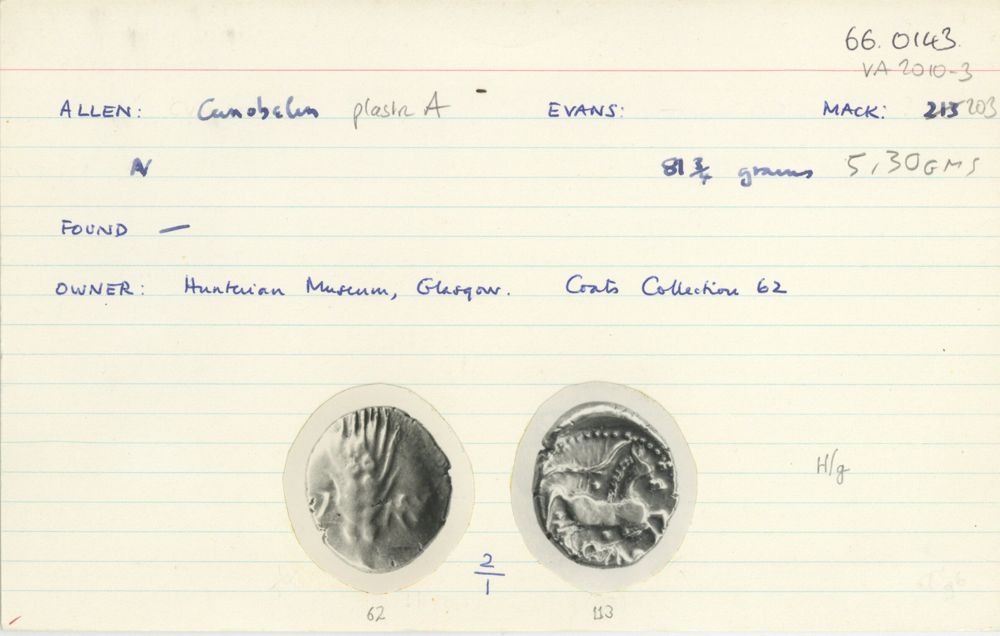 66.0143.
VA 2010-3
ALLEN: Cunobelin plastic A EVANS: MACK: 213 203
N 81 3/4 grams 5,30 GMS
FOUND —
OWNER: Hunterian Museum, Glasgow. Coats Collection 62
H/g
2/1
62 113